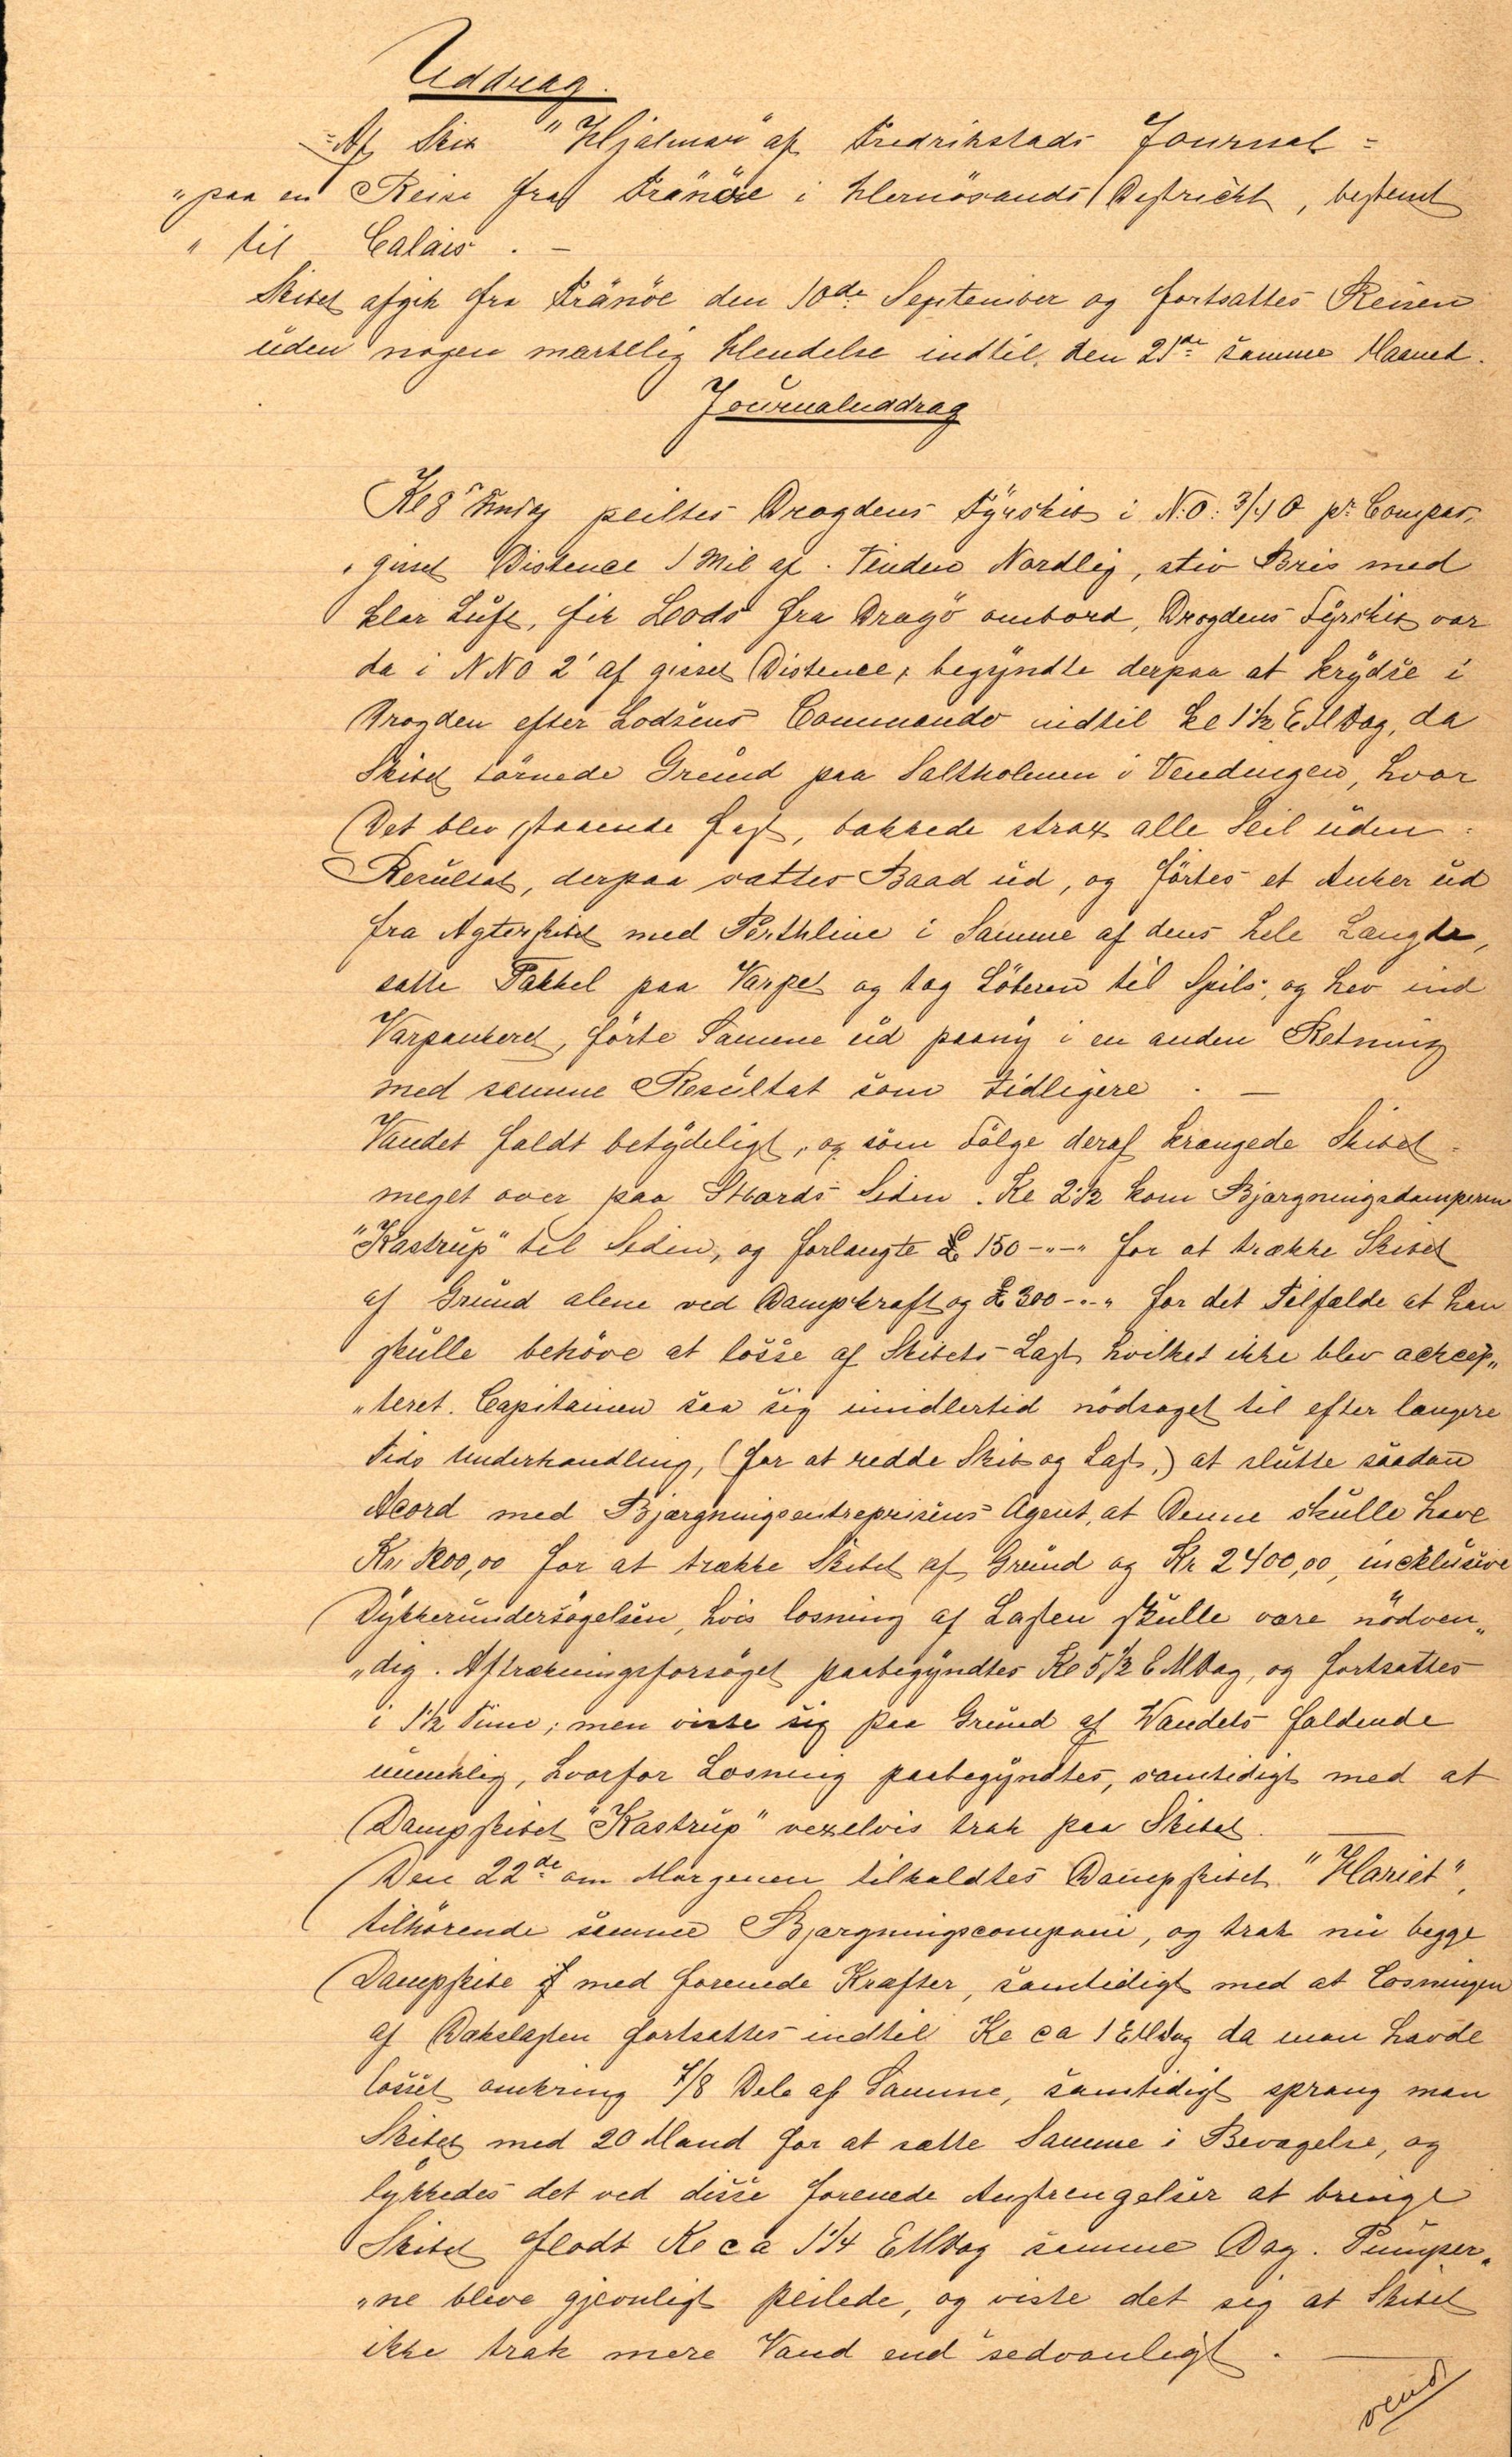 Uddrag.
= Af Skib "Hjalmar" af Fredrikstads Journal =
"paa en Reise fra Fränöe i Hernösands Destrickt, bestemt
" til Calais. —
Skibet afgik fra Fränöe den 10de September og fortsattes Reisen
uden nogen mærkelig Hendelse indtil den 21de samme Maaned.
Journaluddrag
Kl 8 Fmdg peiltes Drogdens Fyrskib i N.O. 3/4 O pr. Compas,
gisset Distence 1 Mil af. Vinden Nordlig, stiv Bris med
klar Luft, fik Lods fra Dragö ombord, Drogdens Fyrskib var
da i N N O 2' af gisset Distence, begyndte derpaa at krydse i
Drogden efter Lodsens Commando indtil kl 1½ E M Dag, da
Skibet törnede Grund paa Saltholmen i Vendingen, hvor
Det blev staaende fast, bakkede strax alle Seil uden
Resultat, derpaa sattes Baad ud, og förtes et Anker ud
fra Agterskibet med Perthline i Samme af dens hele Længde,
satte Takkel paa Varpet og tog Löberen til Spils, og hev ind
Varpankeret, förte Samme ud paany i en anden Retning
med samme Resultat som tidligere. —
Vandet faldt betydeligt, og som Fölge deraf krængede Skibet
meget over paa Stbords Siden. Kl 2½ kom Bjærgningsdamperen
"Kastrup" til Siden, og forlangte £ 150 -"-" for at trække Skibet
af Grund alene ved Dampkraft og £ 300 -"-" for det Tilfælde at han
skulle behöve at losse af Skibets Last, hvilket ikke blev accep"
"teret. Capitainen saa sig imidlertid nödsaget til efter længere
Tids Underhandling, (for at redde Skib og Last,) at slutte saadan
Acord med Bjærgningsentreprisens Agent, at Denne skulle have
Kr. 1200,00 for at trække Skibet af Grund og Kr 2400,00, incklusive
Dykkerundersögelsen, hvis losning af Lasten skulle være nödven"
"dig. Aftrækningsforsöget paabegyndtes Kl 5½ E M Dag, og fortsattes
i 1½ Time; men viste sig paa Grund af Vandets faldende
umuelig, hvorfor Losning paabegyndtes, samtidigt med at
Dampskibet "Kastrup" vexelvis trak paa Skibet. —
Den 22de om Morgenen tilkaldtes Dampskibet "Hariet",
tilhörende samme Bjærgningscompani, og trak nu begge
Dampskibe med forenede Kræfter, samtidigt med at Losningen
af Dækslasten fortsattes indtil Kl ca 1 E M Dag da man havde
losset omkring 7/8 Dele af Samme, samtidigt sprang man
Skibet med 20 Mand for at sætte Samme i Bevægelse, og
lykkedes det ved disse forenede Anstrengelser at bringe
Skibet flodt Kl ca 1¼ E M Dag samme Dag. Pumper"
"ne bleve gjevnligt peilede, og viste det sig at Skibet
ikke trak mere Vand end sedvanligt. —
vend